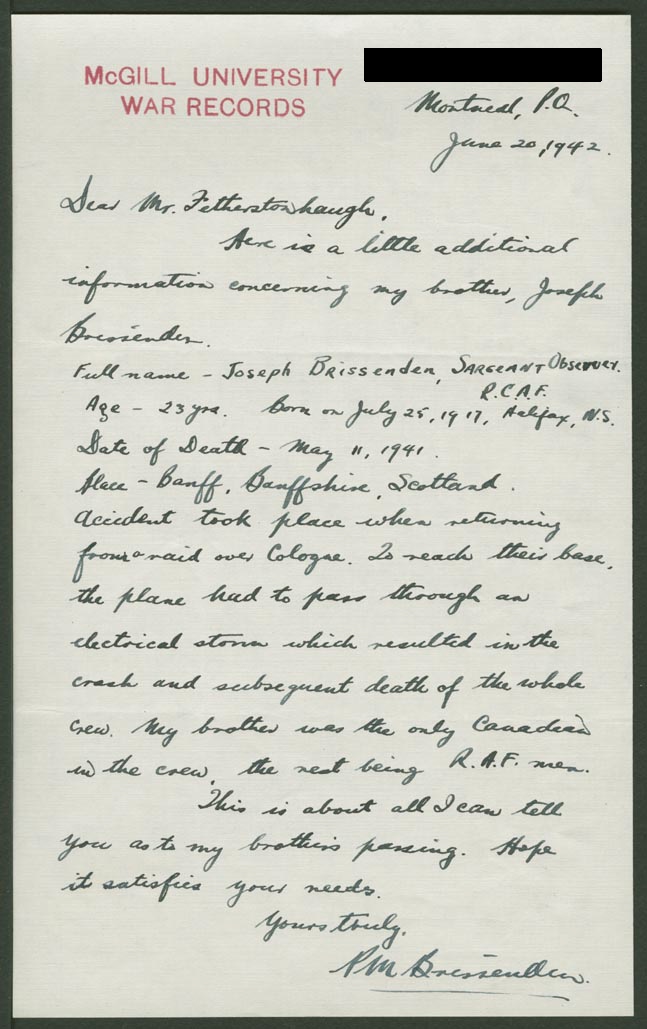 McGILL UNIVERSITY
WAR RECORDS
Montreal, P.Q.
June 20, 1942.
Dear Mr. Fetherstonhaugh,
Here is a little additional
information concerning my brother, Joseph
Brissenden.
Full name - Joseph Brissenden, SARGEANT Observer.
R.C.A.F.
Age - 23 yrs. Born on July 25, 1917, Halifax, N.S.
Date of Death - May 11, 1941.
Place - Banff, Banffshire, Scotland.
Accident took place when returning
from a raid over Cologne. To reach their base,
the plane had to pass through an
electrical storm which resulted in the
crash and subsequent death of the whole
crew. My brother was the only Canadian
in the crew, the rest being R.A.F. men.
This is about all I can tell
you as to my brother's passing. Hope
it satisfies your needs.
Yours truly,
R M Brissenden.